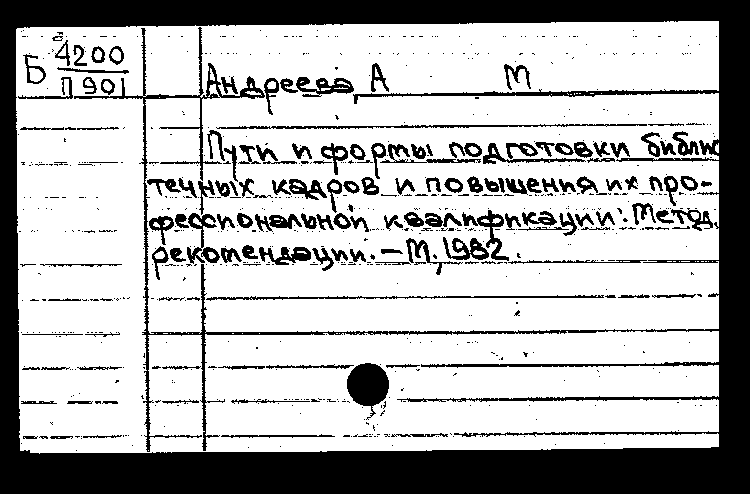 Б 4200
П 901
Андреева, А М
Пути и формы подготовки библио
течных кадров и повышения их про-
фессиональной квалификации: Метод.
рекомендации. – М, 1982.